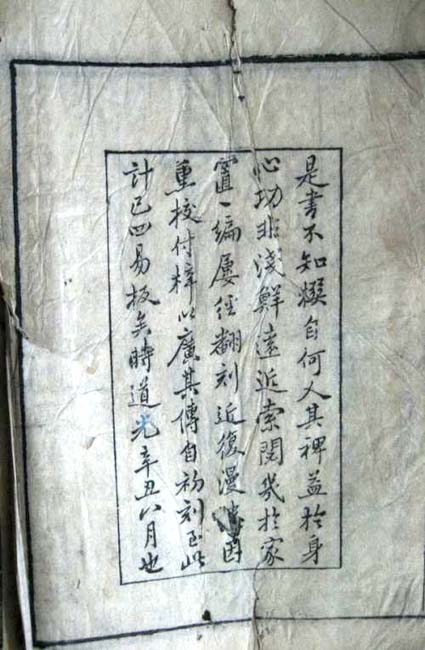 是書不知輯自何人其裨益於身
心功非淺鮮遠近索閱幾於家
置一編屢經翻刻近復漫漶因
重校付梓以廣其傳自初刻至此
計已四易板矣時道光辛丑八月也